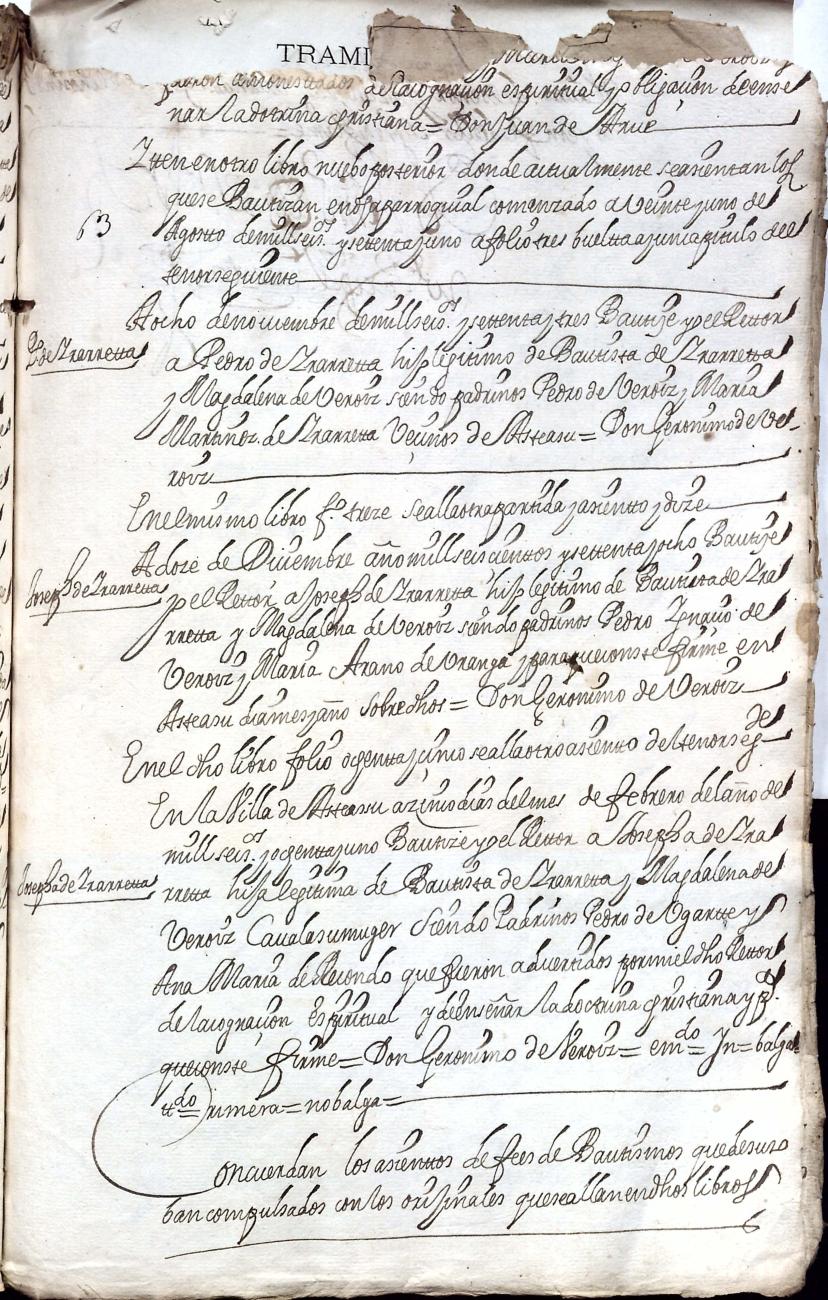 TRAMI
fueron amonesttados de la cognaçion espiritual y obligaçion de ense
nar la dotrina christiana = Don Juan de
Ytten en otro libro nuebo postterior donde actualmente se asientan los
que se Bautizan en dha parroquial comenzado a Veinte y uno de
63
Agosto de mill seisos. y settenta y uno a folio tres buelta ay un capitulo del
tenor seguiente
A ocho de noviembre de mill seisos. y settenta y tres Bautize yo el Rettor
Po. de Yrarretta
a Pedro de Yrarretta hijo legitimo de Bautista de Yrarretta
y Magdalena de Veroiz siendo padrinos Pedro de Veroiz y Maria
Martinez de Yrarretta Vecinos de Asteasu = Don Geronimo de Ve-
roiz
En el mismo libro fo. treze se alla otra partida y asientto y dize
A doze de Diciembre año mill seiscienttos y settenta y ocho Bautize
Joseph de Yrarretta
yo el Rettor a Joseph de Yrarretta hijo legitimo de Bautista de Yra
rretta y Magdalena de Veroiz siendo padrinos Pedro Ygnaçio de
Veroiz y Maria Arano de Uranga y para que conste firme en
Asteasu dia mes y año sobre dhos = Don Geronimo de Veroiz
En el dho libro folio ochentta y cinco se alla otro asiento del tenor seg
de
En la Villa de Asteasu a zinco dias del mes de febrero del año de
mill seisos. y ochentta y uno Bautize yo el Rettor a Josepha de Yra
Josepha de Yrarretta
rretta hija legitima de Bautista de Yrarretta y Magdalena de
Veroiz Cavala su muger siendo Padrinos Pedro de Ugartte y
Ana Maria de Recondo que fueron advertidos por mi el dho Rettor
de la cognaçion espiritual y de enseñar la doctrina christiana y pa.
que conste firme = Don Geronimo de Veroiz = emdo Jn = balga
ttdo rimera = no balga =
Concuerdan los asienttos de fees de Bautismos que de suso
ban compulsados con los orijinales que se allan en dhos libros